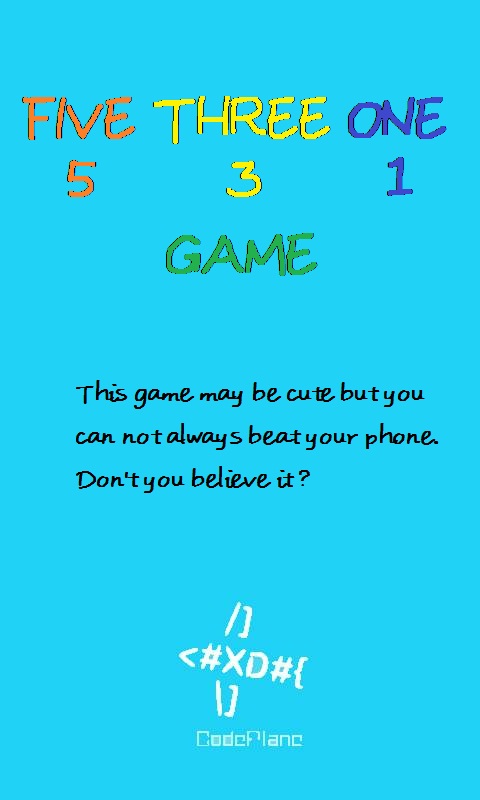 FIVE THREE ONE
5 3 1
GAME
This game may be cute but you
can not always beat your phone.
Don't you believe it?
/]
<#XD#{
\]
CodePlane